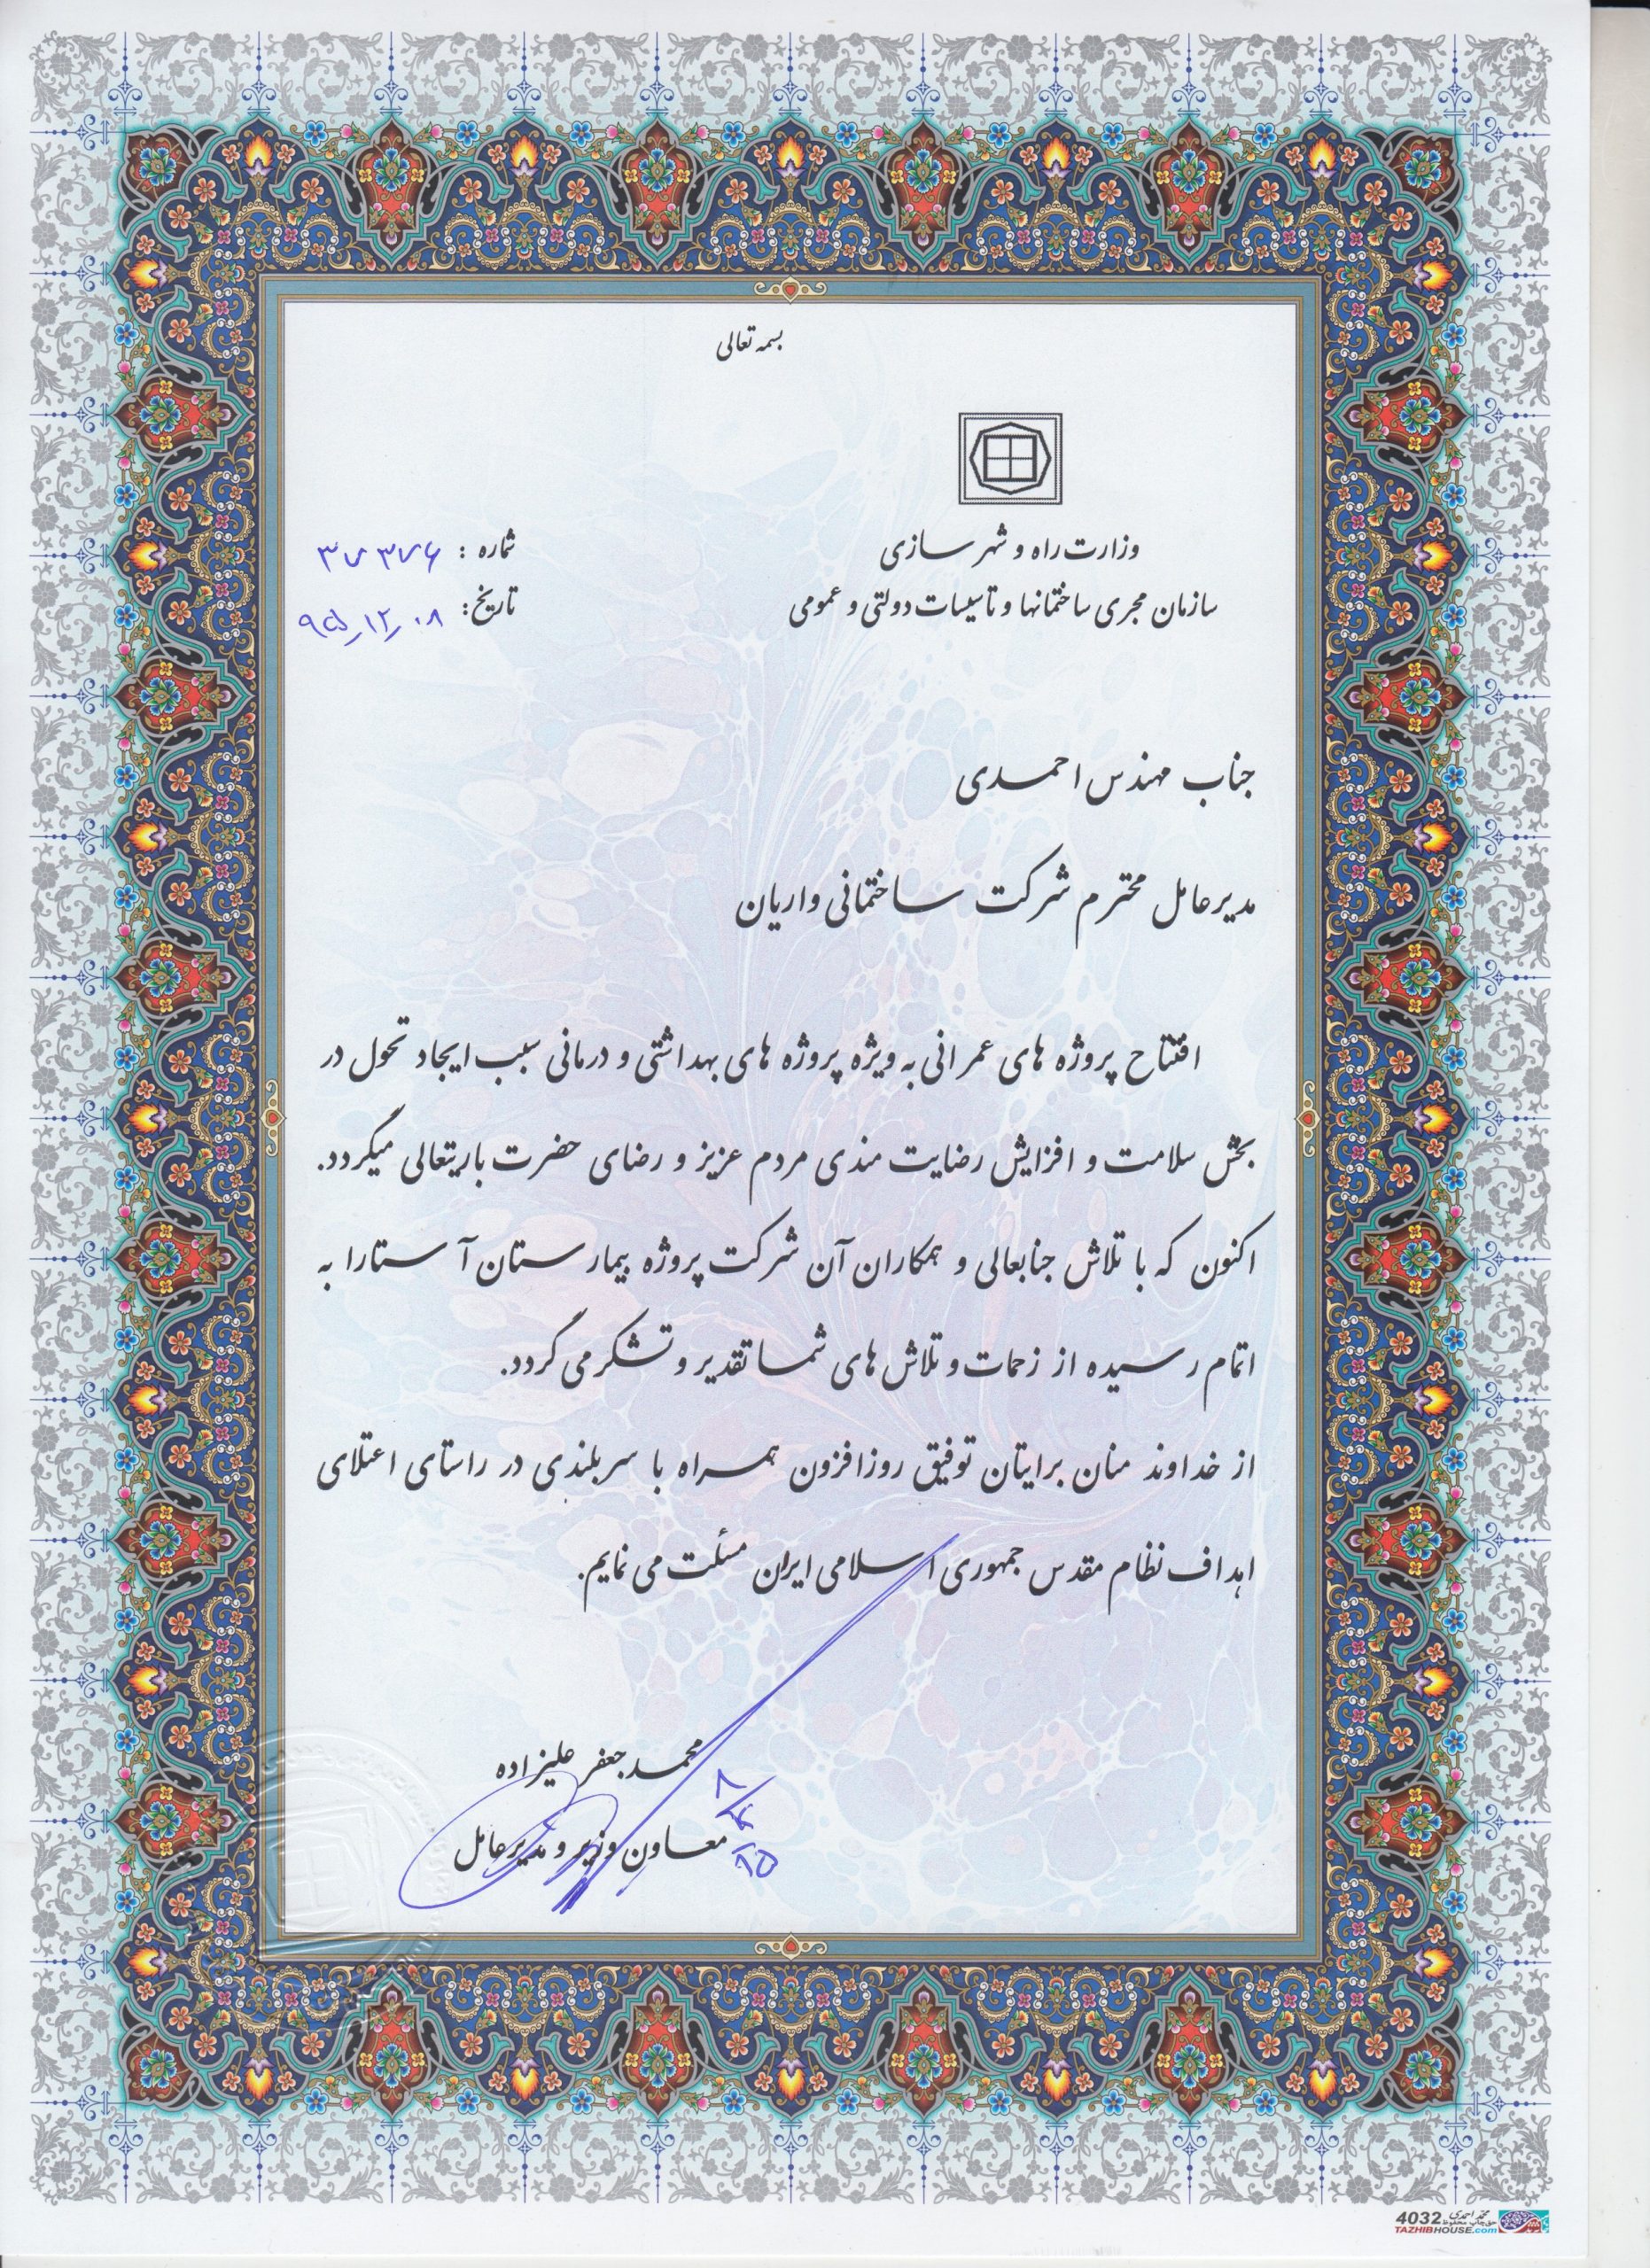 بسمه تعالی
وزارت راه و شهرسازی
سازمان مجری ساختمانها و تاسیسات دولتی و عمومی
شماره : ۳۷۳۷۶
تاریخ: ۹۵/۱۲/۰۸
جناب مهندس احمدی
مدیرعامل محترم شرکت ساختمانی واریان
افتتاح پروژه های عمرانی به ویژه پروژه های بهداشتی و درمانی سبب ایجاد تحول در
بخش سلامت و افزایش رضایت مندی مردم عزیز و رضای حضرت باریتعالی میگردد.
اکنون که با تلاش جنابعالی و همکاران آن شرکت پروژه بیمارستان آستارا به
اتمام رسیده از زحمات و تلاش های شما تقدیر و تشکر می گردد.
از خداوند منان برایتان توفیق روزافزون همراه با سربلندی در راستای اعتلای
اهداف نظام مقدس جمهوری اسلامی ایران مسئلت می نمایم.
محمد جعفر علیزاده
معاون وزیر و مدیرعامل
4032 محمد احمدی
حق چاپ محفوظ
TAZHIBHOUSE.com